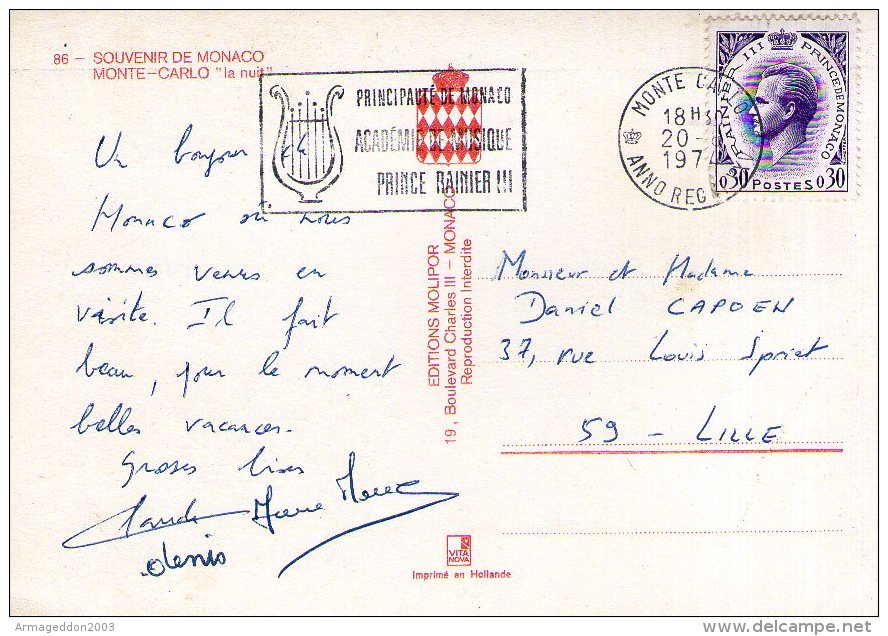 86 – SOUVENIR DE MONACO
MONTE–CARLO "la nuit"
PRINCIPAUTÉ DE MONACO
ACADÉMIE DE MUSIQUE
PRINCE RAINIER III
MONTE CARLO
18H30
20-
197
ANNO REG
RAINIER III PRINCE DE MONACO
0,30 POSTES 0,30
Un bonjour de
Monaco où nous
sommes venus en
visite. Il fait
beau, pour le moment
belles vacances.
Grosses bises
Claude Marie
denis
EDITIONS MOLIPOR
19, Boulevard Charles III – MONACO
Reproduction Interdite
Monsieur et Madame
Daniel CAPOEN
37, rue Louis Spriet
59 – LILLE
VITA
NOVA
Imprimé en Hollande
Armageddon2003
delcampe.net